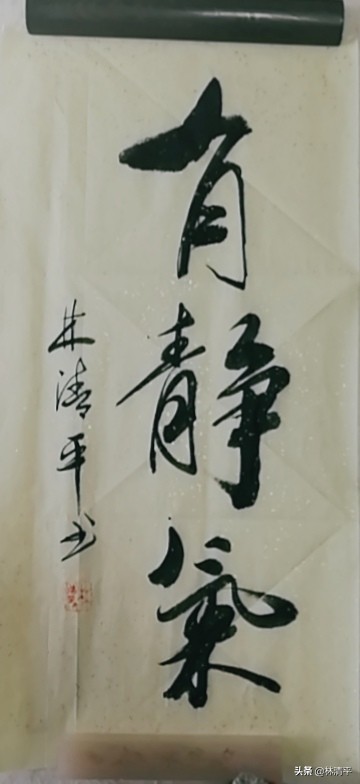 有静氣
林清平书
头条 @林清平